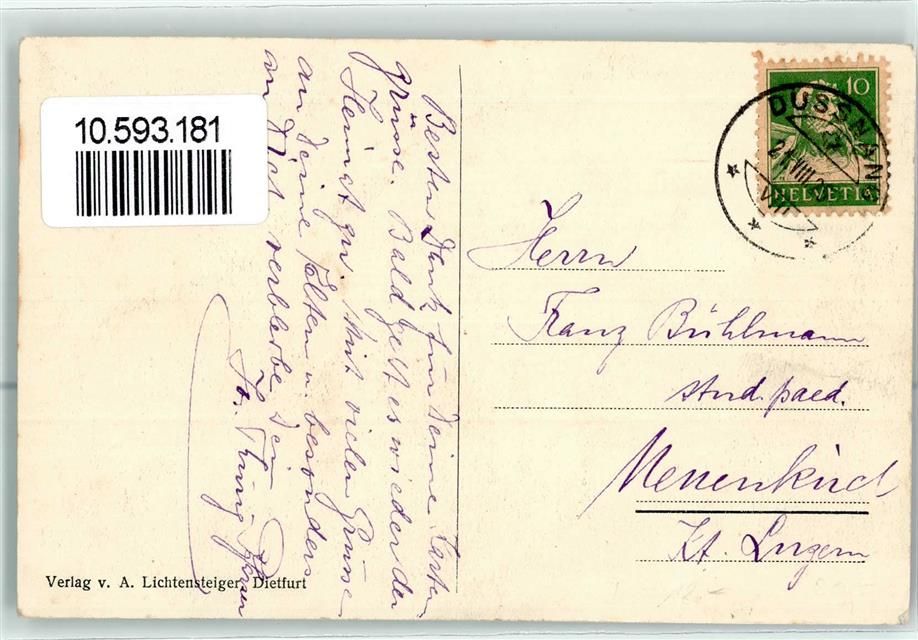 10.593.181
Besten Dank für deine Karten
grüsse. Bald geht es wieder der
Heimat zu. Mit vielen Grüsse
an deine Eltern u. besonders
an Dich verbleibe dein
Verlag v. A. Lichtensteiger, Dietfurt
10
HELVETIA
DUSSNANG
Herrn
Franz Bühlmann
stud. paed.
Neuenkirch
Kt. Luzern